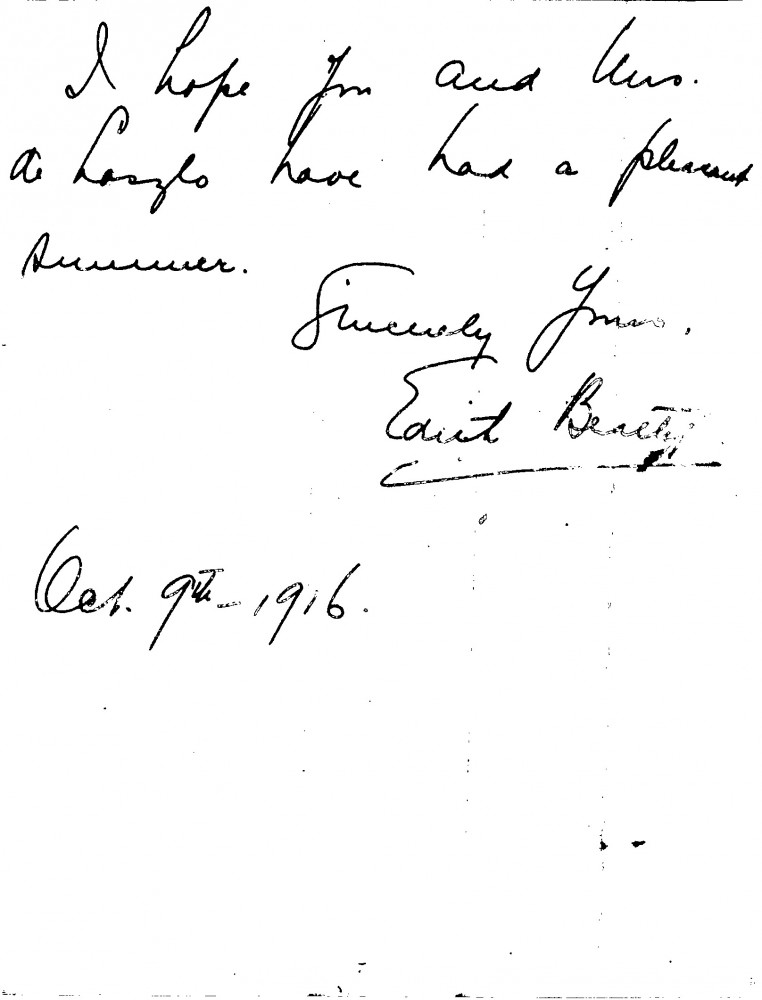 I hope you and Mrs.
de Laszlo have had a pleasant
summer.
Sincerely Yours.
Edith Beatty
Oct. 9th - 1916.